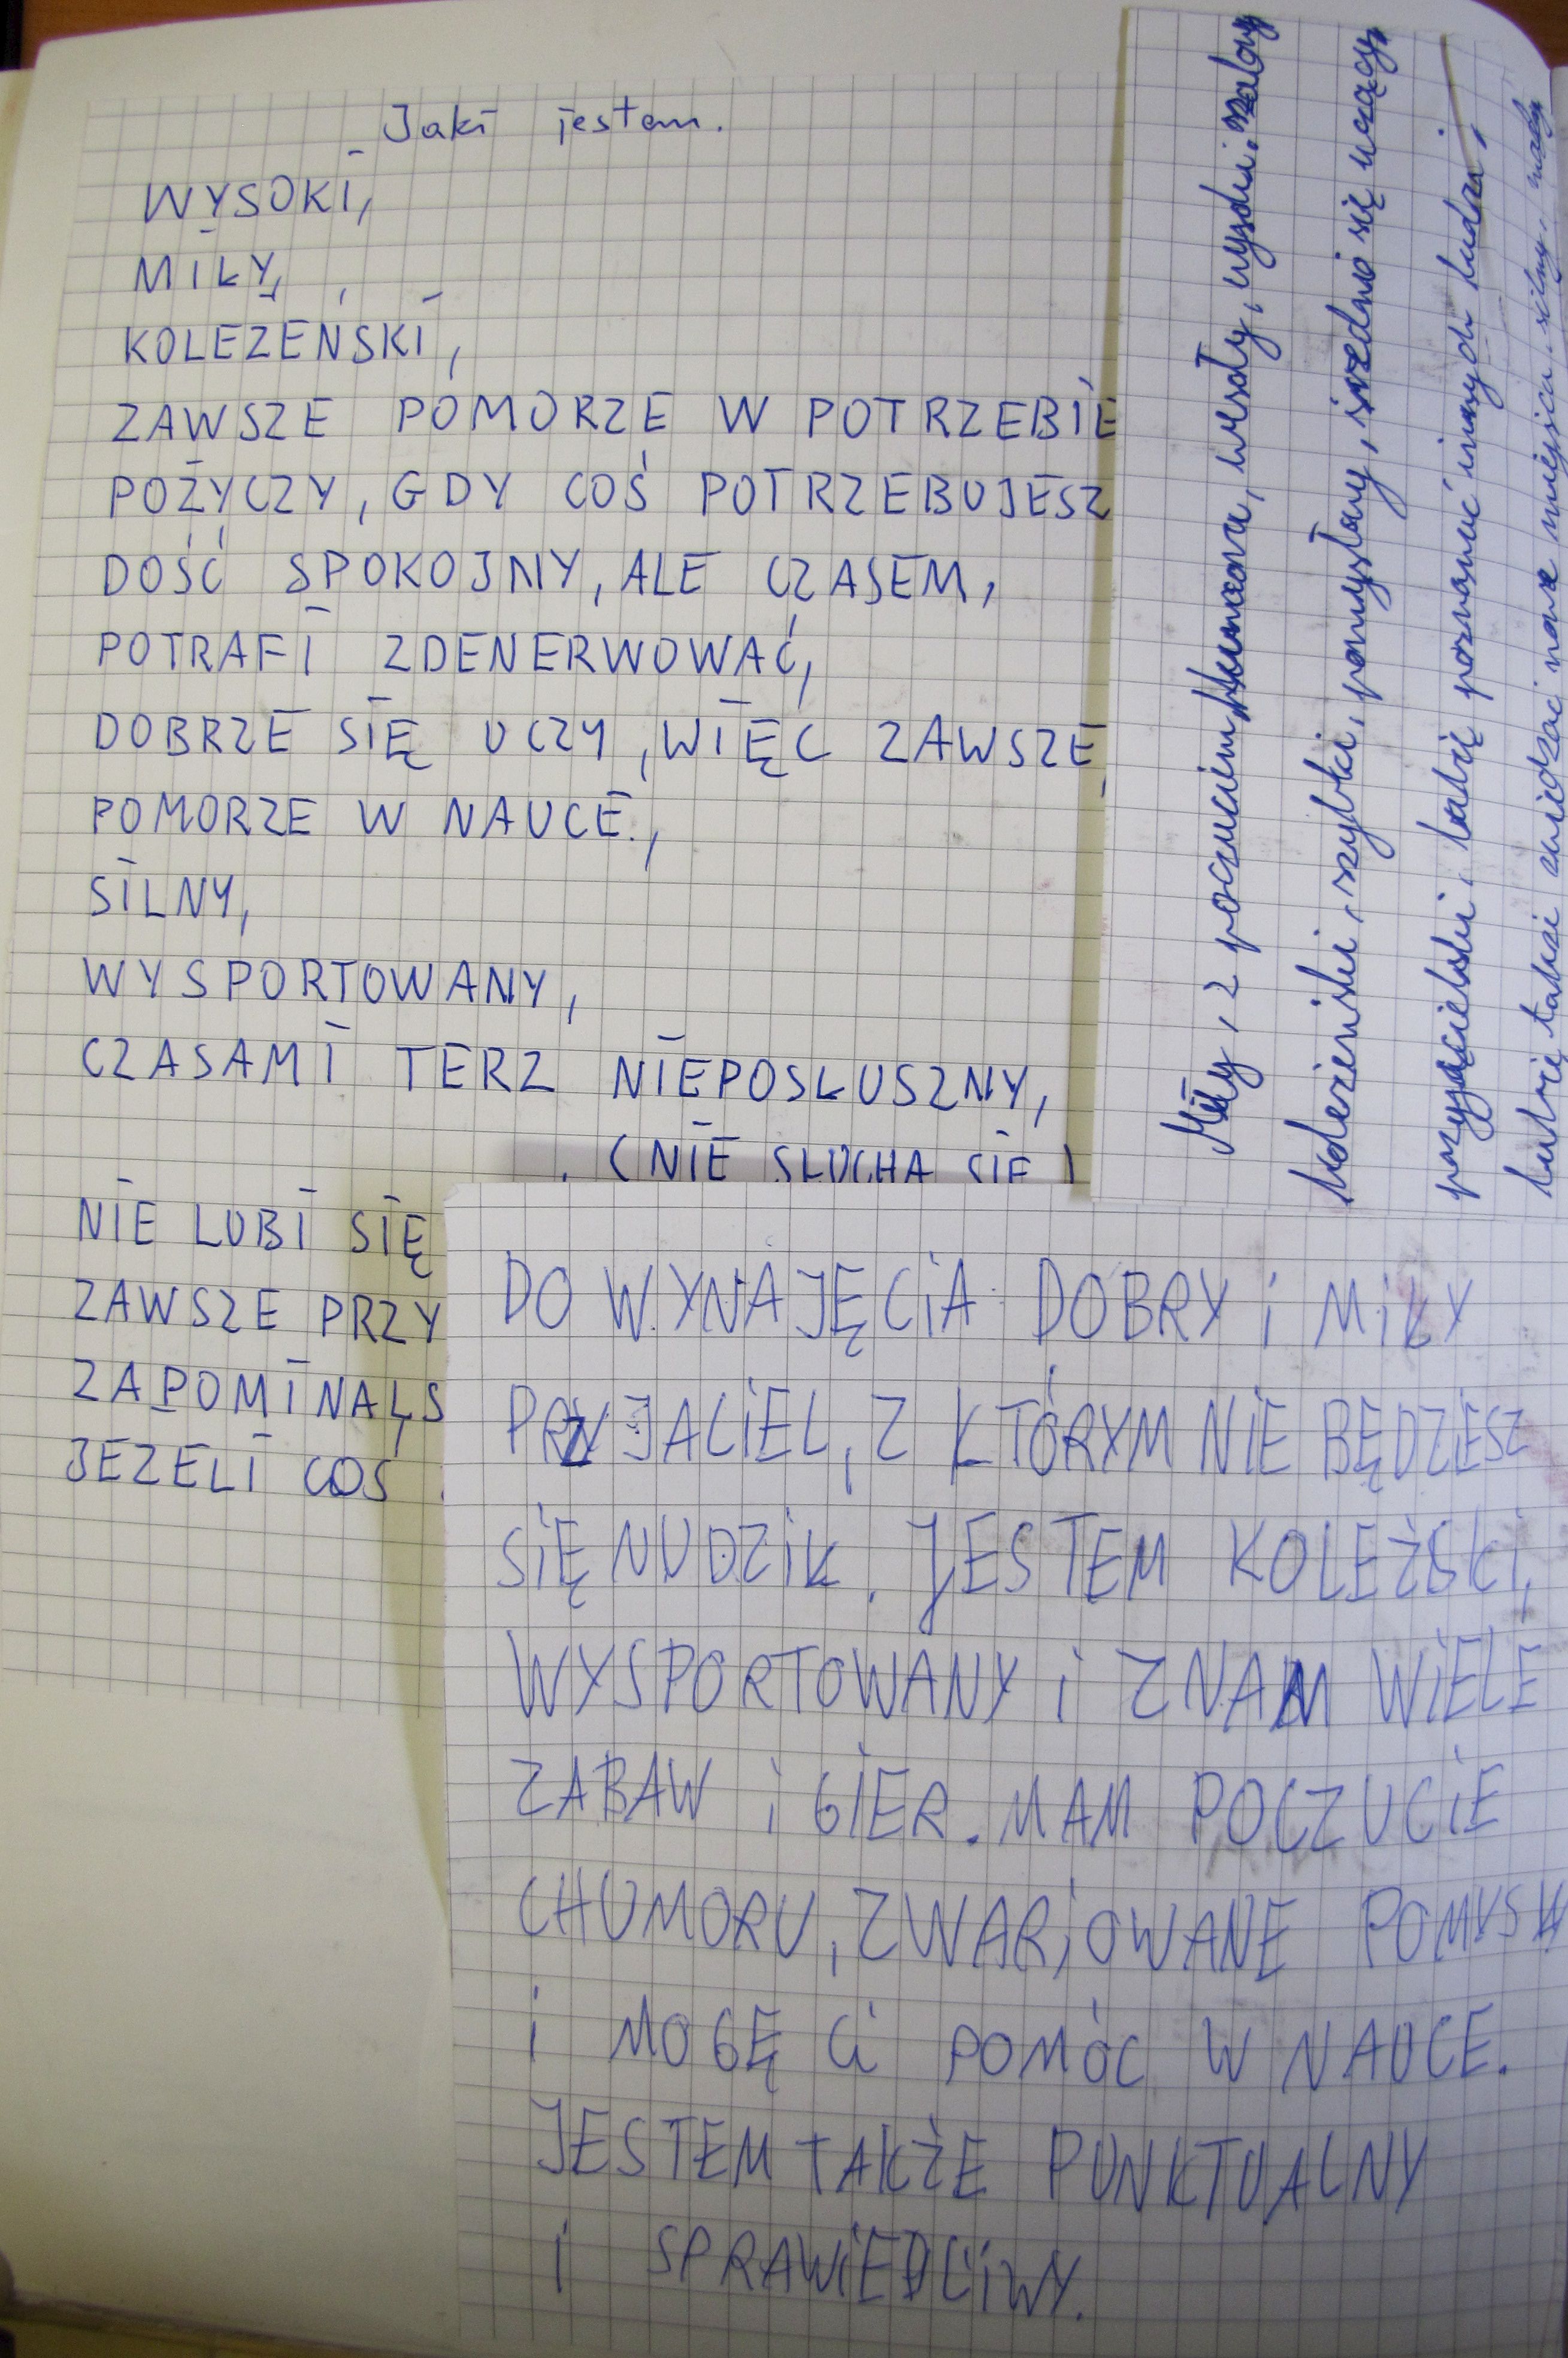 Jaki jestem.
WYSOKI,
MIŁY,
KOLEŻEŃSKI,
ZAWSZE POMORZE W POTRZEBIE
POŻYCZY, GDY COŚ POTRZEBUJESZ
DOŚĆ SPOKOJNY, ALE CZASEM,
POTRAFI ZDENERWOWAĆ,
DOBRZE SIĘ UCZY, WIĘC ZAWSZE
POMORZE W NAUCE.,
SILNY,
WYSPORTOWANY,
CZASAMI TERZ NIEPOSŁUSZNY,
(NIE SŁUCHA SIĘ)
NIE LUBI SIĘ
ZAWSZE PRZY
ZAPOMINALS
JEZELI COŚ
Miły, z poczuciem humoru, wesoły, wysoki,
koleżeński, szybki, pomysłowy, średnio się uczący
przyjacielski, lubię poznawać innych ludzi,
lubię także zwiedzać nowe miejsca, silny, mały
DO WYNAJĘCIA DOBRY i MiŁY
PRZYJACIEL, Z KTÓRYM NIE BĘDZIESZ
SIĘ NUDZIŁ. JESTEM KOLEŻSKI,
WYSPORTOWANY i ZNAM WIELE
ZABAW i GIER. MAM POCZUCIE
CHUMORU, ZWARJOWANE POMYSŁY
i MOGĘ Ci POMÓC W NAUCE.
JESTEM TAKŻE PUNKTUALNY
i SPRAWIEDLIWY.